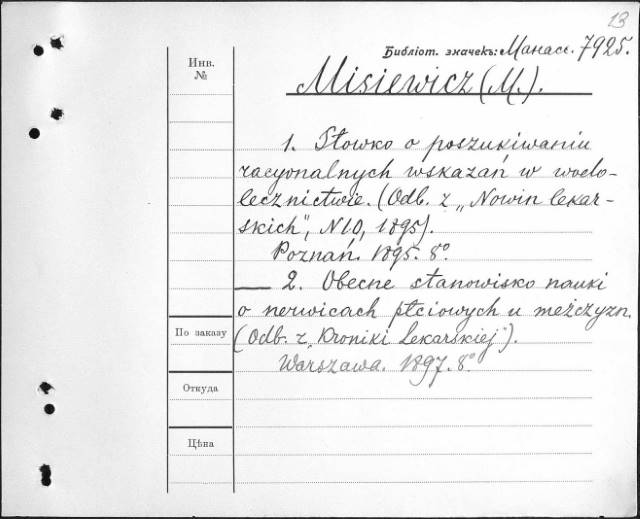 13
Библіот. значекъ: Манасс. 7925.
Инв.
№
Misiewicz (M.).
1. Słowko o poszukiwaniu
racyonalnych wskazań w wodo-
lecznictwie. (Odb. z „Nowin lekar-
skich", N10, 1895).
Poznań. 1895. 8°.
2. Obecne stanowisko nauki
o nerwicach płciowych u mężczyzn.
По заказу
(Odb. z „Kroniki Lekarskiej").
Warszawa. 1897. 8°.
Откуда
Цѣна